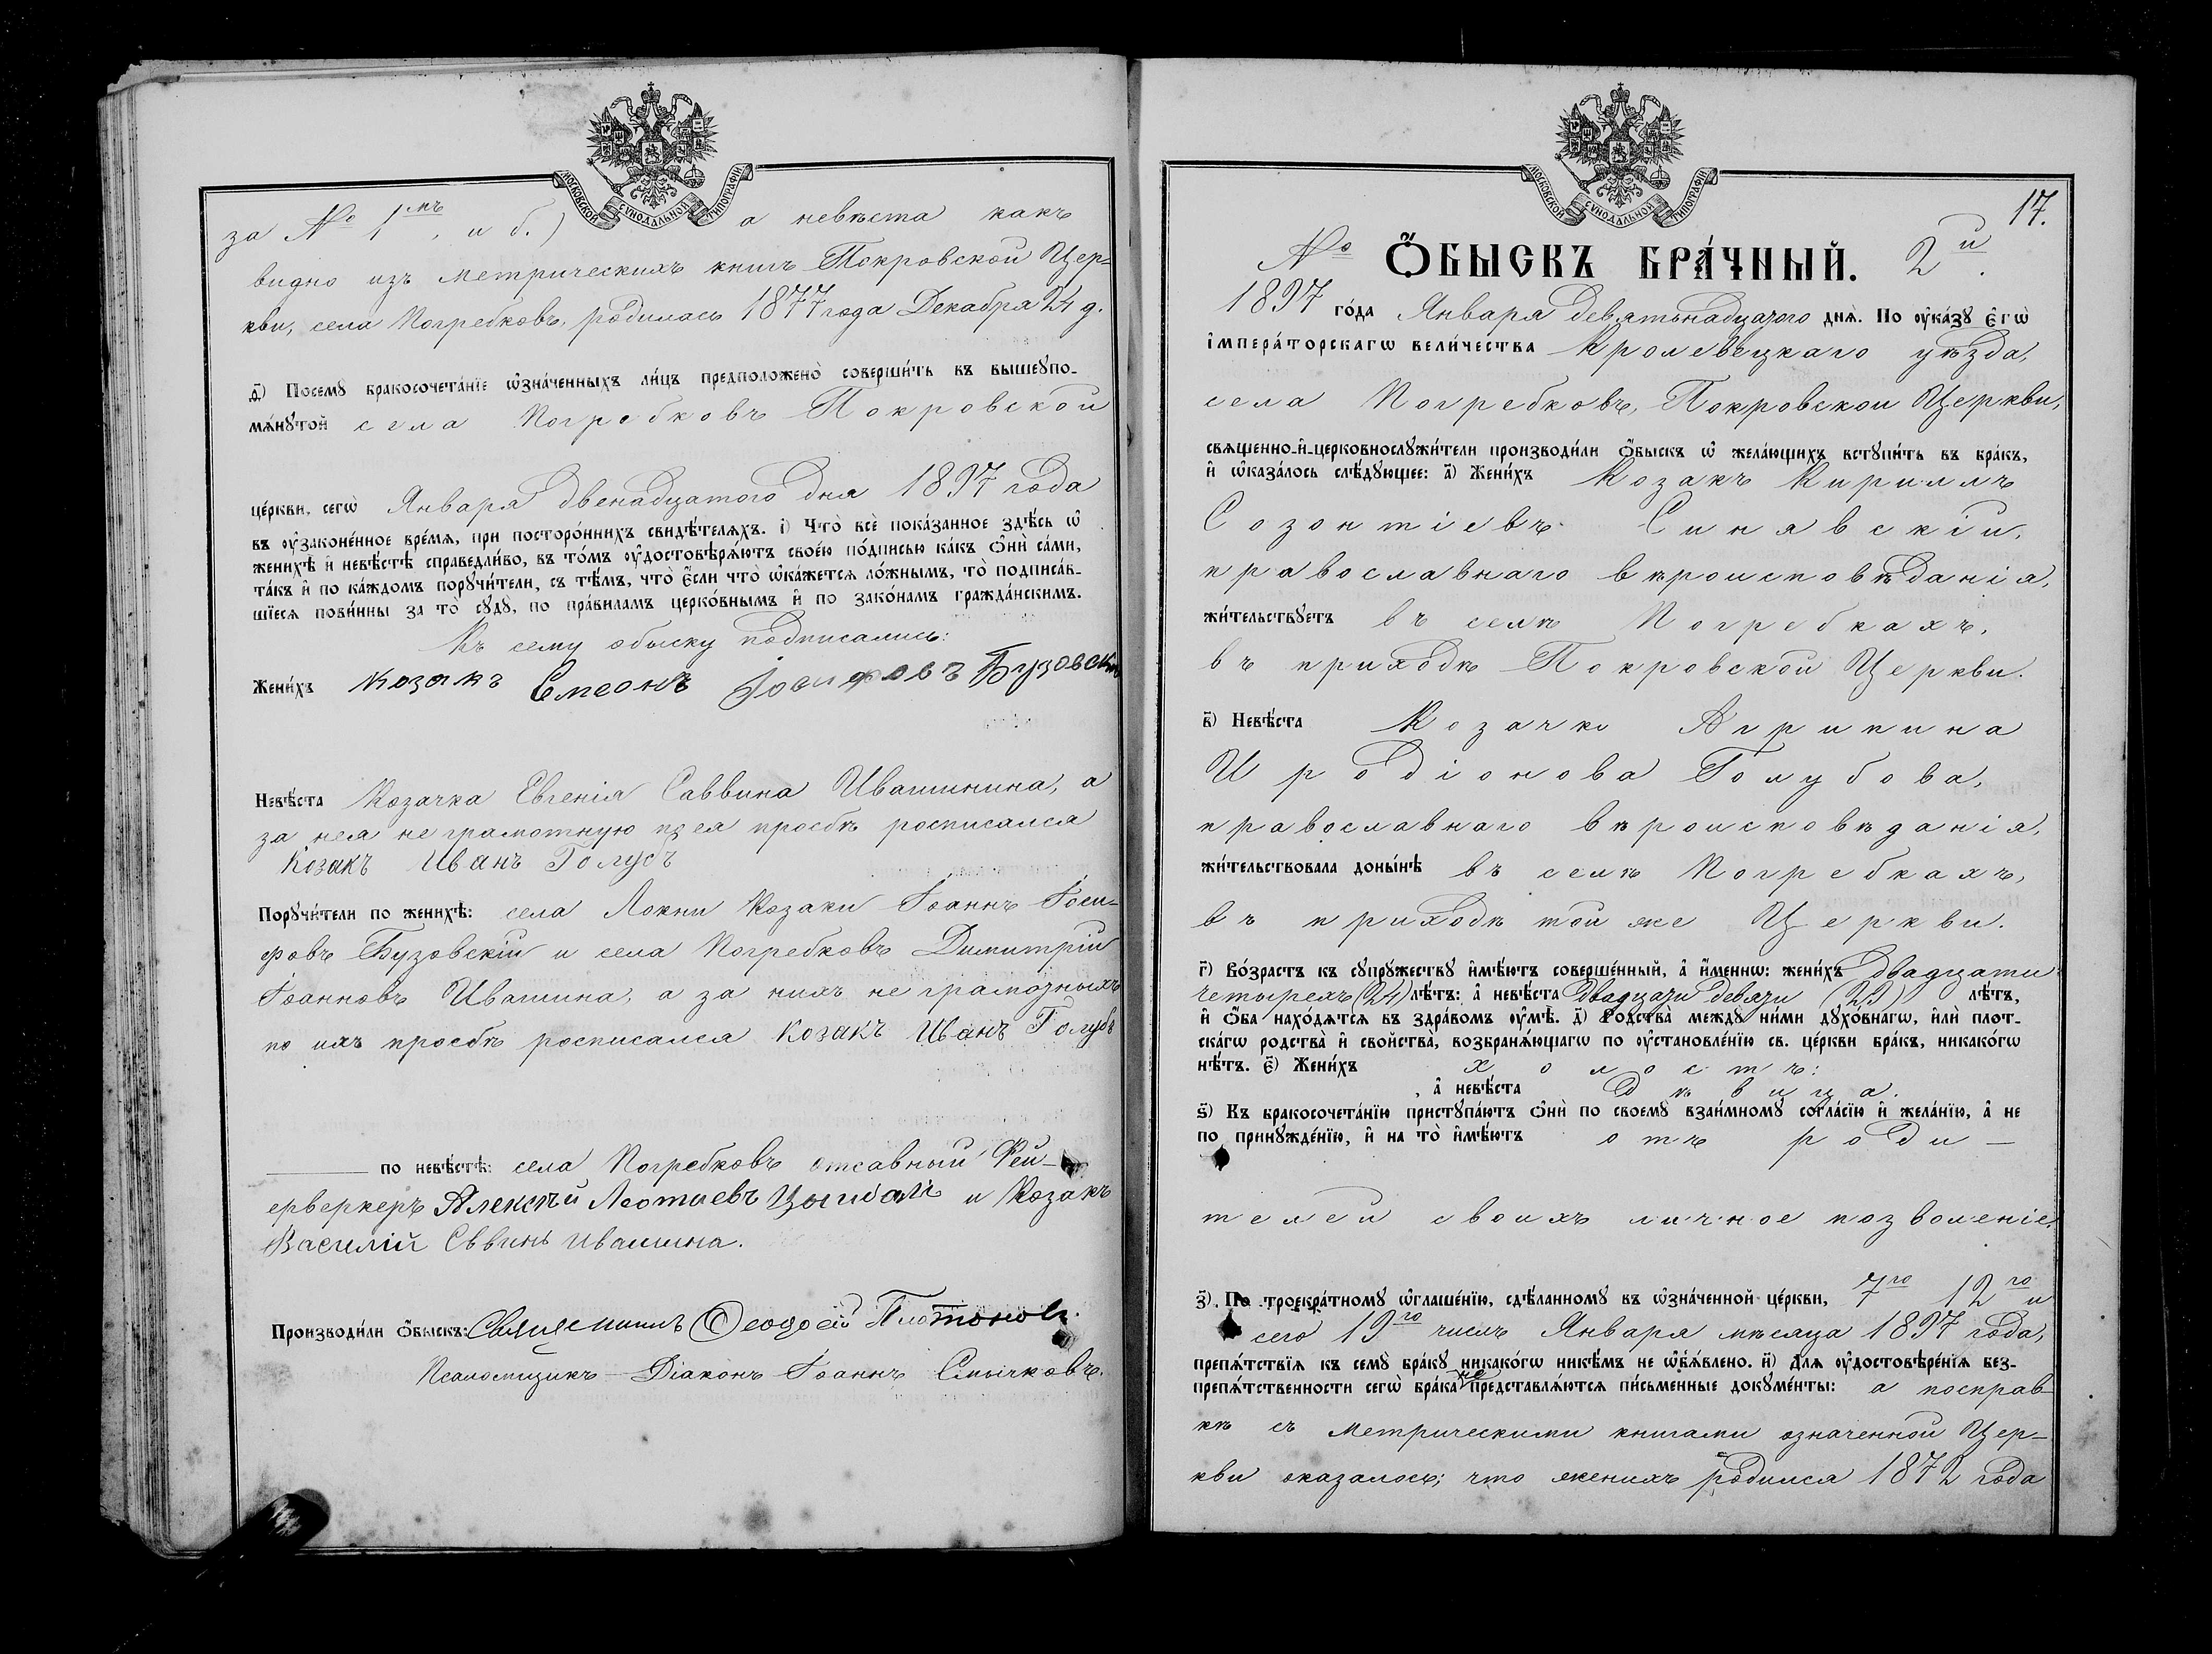 МОСКОВСКОЙ СѴНОДАЛЬНОЙ ТИПОГРАФІИ
за № 1мъ, и б.) а невѣста какъ
видно изъ метрическихъ книгъ Покровской Цер=
кви, села Погребковъ, родилась 1877 года Декабря 24 д.
д҃) Посемꙋ бракосочета́нїе ѡ҆зна́ченныхъ ли́цъ предположено̀ соверши́ть въ вышеꙋпо-
мѧ́нꙋтой села Погребковъ Покровской
це́ркви, сегѡ̀ Января двенадцатого дня 1897 года
въ ᲂу҆законе́нное вре́мѧ, при посторо́ннихъ свидѣ́телѧхъ. і҃) Что̀ всѐ пока́занное здѣ́сь ѡ҆
женихѣ̀ и҆ невѣ́стѣ справедли́во, въ то́мъ ᲂу҆достовѣрѧ́ютъ свое́ю по́дписью ка́къ ѻ҆нѝ са́ми,
та́къ и҆ по ка́ждомъ порꙋчи́тели, съ тѣ́мъ, что̀ є҆́сли что̀ ѡ҆ка́жетсѧ ло́жнымъ, то̀ подписа́в-
шїесѧ пови́нны за то̀ сꙋдꙋ̀, по пра́виламъ церко́внымъ и҆ по зако́намъ гражда́нскимъ.
Къ сему обыску подписались:
Жени́хъ козакъ Симеонъ Іосифовъ Бузовскій
Невѣ́ста Козачка Евгенія Саввина Ивашинина, а
за нея не грамотную по ея просбѣ росписался
Козакъ Иванъ Голубъ
Порꙋчи́тели по женихѣ̀: села Локни Козаки Іоаннъ Іоси-
фовъ Бузовскій и села Погребковъ Димитрій
Іоанновъ Ивашина, а за нихъ не грамотныхъ
по ихъ просбѣ росписался Козакъ Иванъ Голубъ
по невѣ́стѣ: села Погребковъ отсавный Фей-
ерверкеръ Алексѣй Леотиевъ Цыганъ и Козакъ
Василій Сввинъ Ивашина.
Производи́ли ѻ҆́быскъ: Священникъ Ѳеодосій Платоновъ.
Псаломщикъ - Діаконъ Іоаннъ Смычковъ.
МОСКОВСКОЙ СѴНОДАЛЬНОЙ ТИПОГРАФІИ
17.
№ Ѻ҆́БЫСКЪ БРА́ЧНЫЙ. 2й.
1897 го́да Января девятьнадцатого днѧ̀. По ᲂу҆ка́зꙋ є҆гѡ̀
і҆мпера́торскагѡ вели́чества Кролевецкаго уѣзда,
села Погребковъ, Покровской Церкви,
свѧще́нно-и҆-церковнослꙋжи́тели производи́ли ѻ҆́быскъ ѡ҆ жела́ющихъ встꙋпи́ть въ бра́къ,
и҆ ѡ҆каза́лось слѣ́дꙋющее: а҃) Жени́хъ Козакъ Кириллъ
Созонтіевъ Синявскій,
православнаго вѣроисповѣданія,
жи́тельствꙋетъ въ селѣ Погребкахъ,
въ приходѣ Покровской Церкви.
в҃) Невѣ́ста Козачка Агрипина
Иродіонова Голубова,
православнаго вѣроисповѣданія,
жи́тельствовала доны́нѣ въ селѣ Погребкахъ,
въ приходѣ той же Церкви.
г҃) Во́зрастъ къ сꙋпрꙋ́жествꙋ и҆мѣ́ютъ соверше́нный, а҆ и҆́меннѡ: жени́хъ двадцати
четырехъ (24) лѣ́тъ: а҆ невѣ́ста двадцати девяти (29) лѣ́тъ,
и҆ ѻ҆́ба нахо́дѧтсѧ въ здра́вомъ ᲂу҆мѣ̀. д҃) Родства̀ междꙋ̀ ни́ми дꙋхо́внагѡ, и҆лѝ плот-
ска́гѡ родства̀ и҆ сво́йства̀, возбранѧ́ющагѡ по ᲂу҆становле́нїю св. це́ркви бра́къ, никако́гѡ
нѣ́тъ. є҃) Жени́хъ холостъ:
, а҆ невѣ́ста дѣвица.
ѕ҃) Къ бракосочета́нїю пристꙋпа́ютъ ѻ҆нѝ по своемꙋ̀ взаи́мномꙋ согла́сїю и҆ жела́нїю, а҆ не
по принꙋжде́нїю, и҆ на то̀ и҆мѣ́ютъ отъ роди-
телей своихъ личное позволеніе.
з҃) По троекра́тномꙋ ѡ҆глаше́нїю, сдѣ́ланномꙋ въ ѡ҆зна́ченной це́ркви, 7го 12го и
сего 19го числъ Января мѣсяца 1897 года,
препѧ́тствїѧ къ семꙋ̀ бра́кꙋ никако́гѡ никѣ́мъ не ѡ҆б̾ѧ́влено. и҃) Длѧ ᲂу҆достовѣре́нїѧ без-
препѧ́тственности сегѡ̀ бра́ка не представлѧ́ютсѧ пи́сьменные докꙋме́нты: а посправ-
кѣ съ метрическими книгами означенной Цер-
кви оказалось; что женихъ родился 1872 года